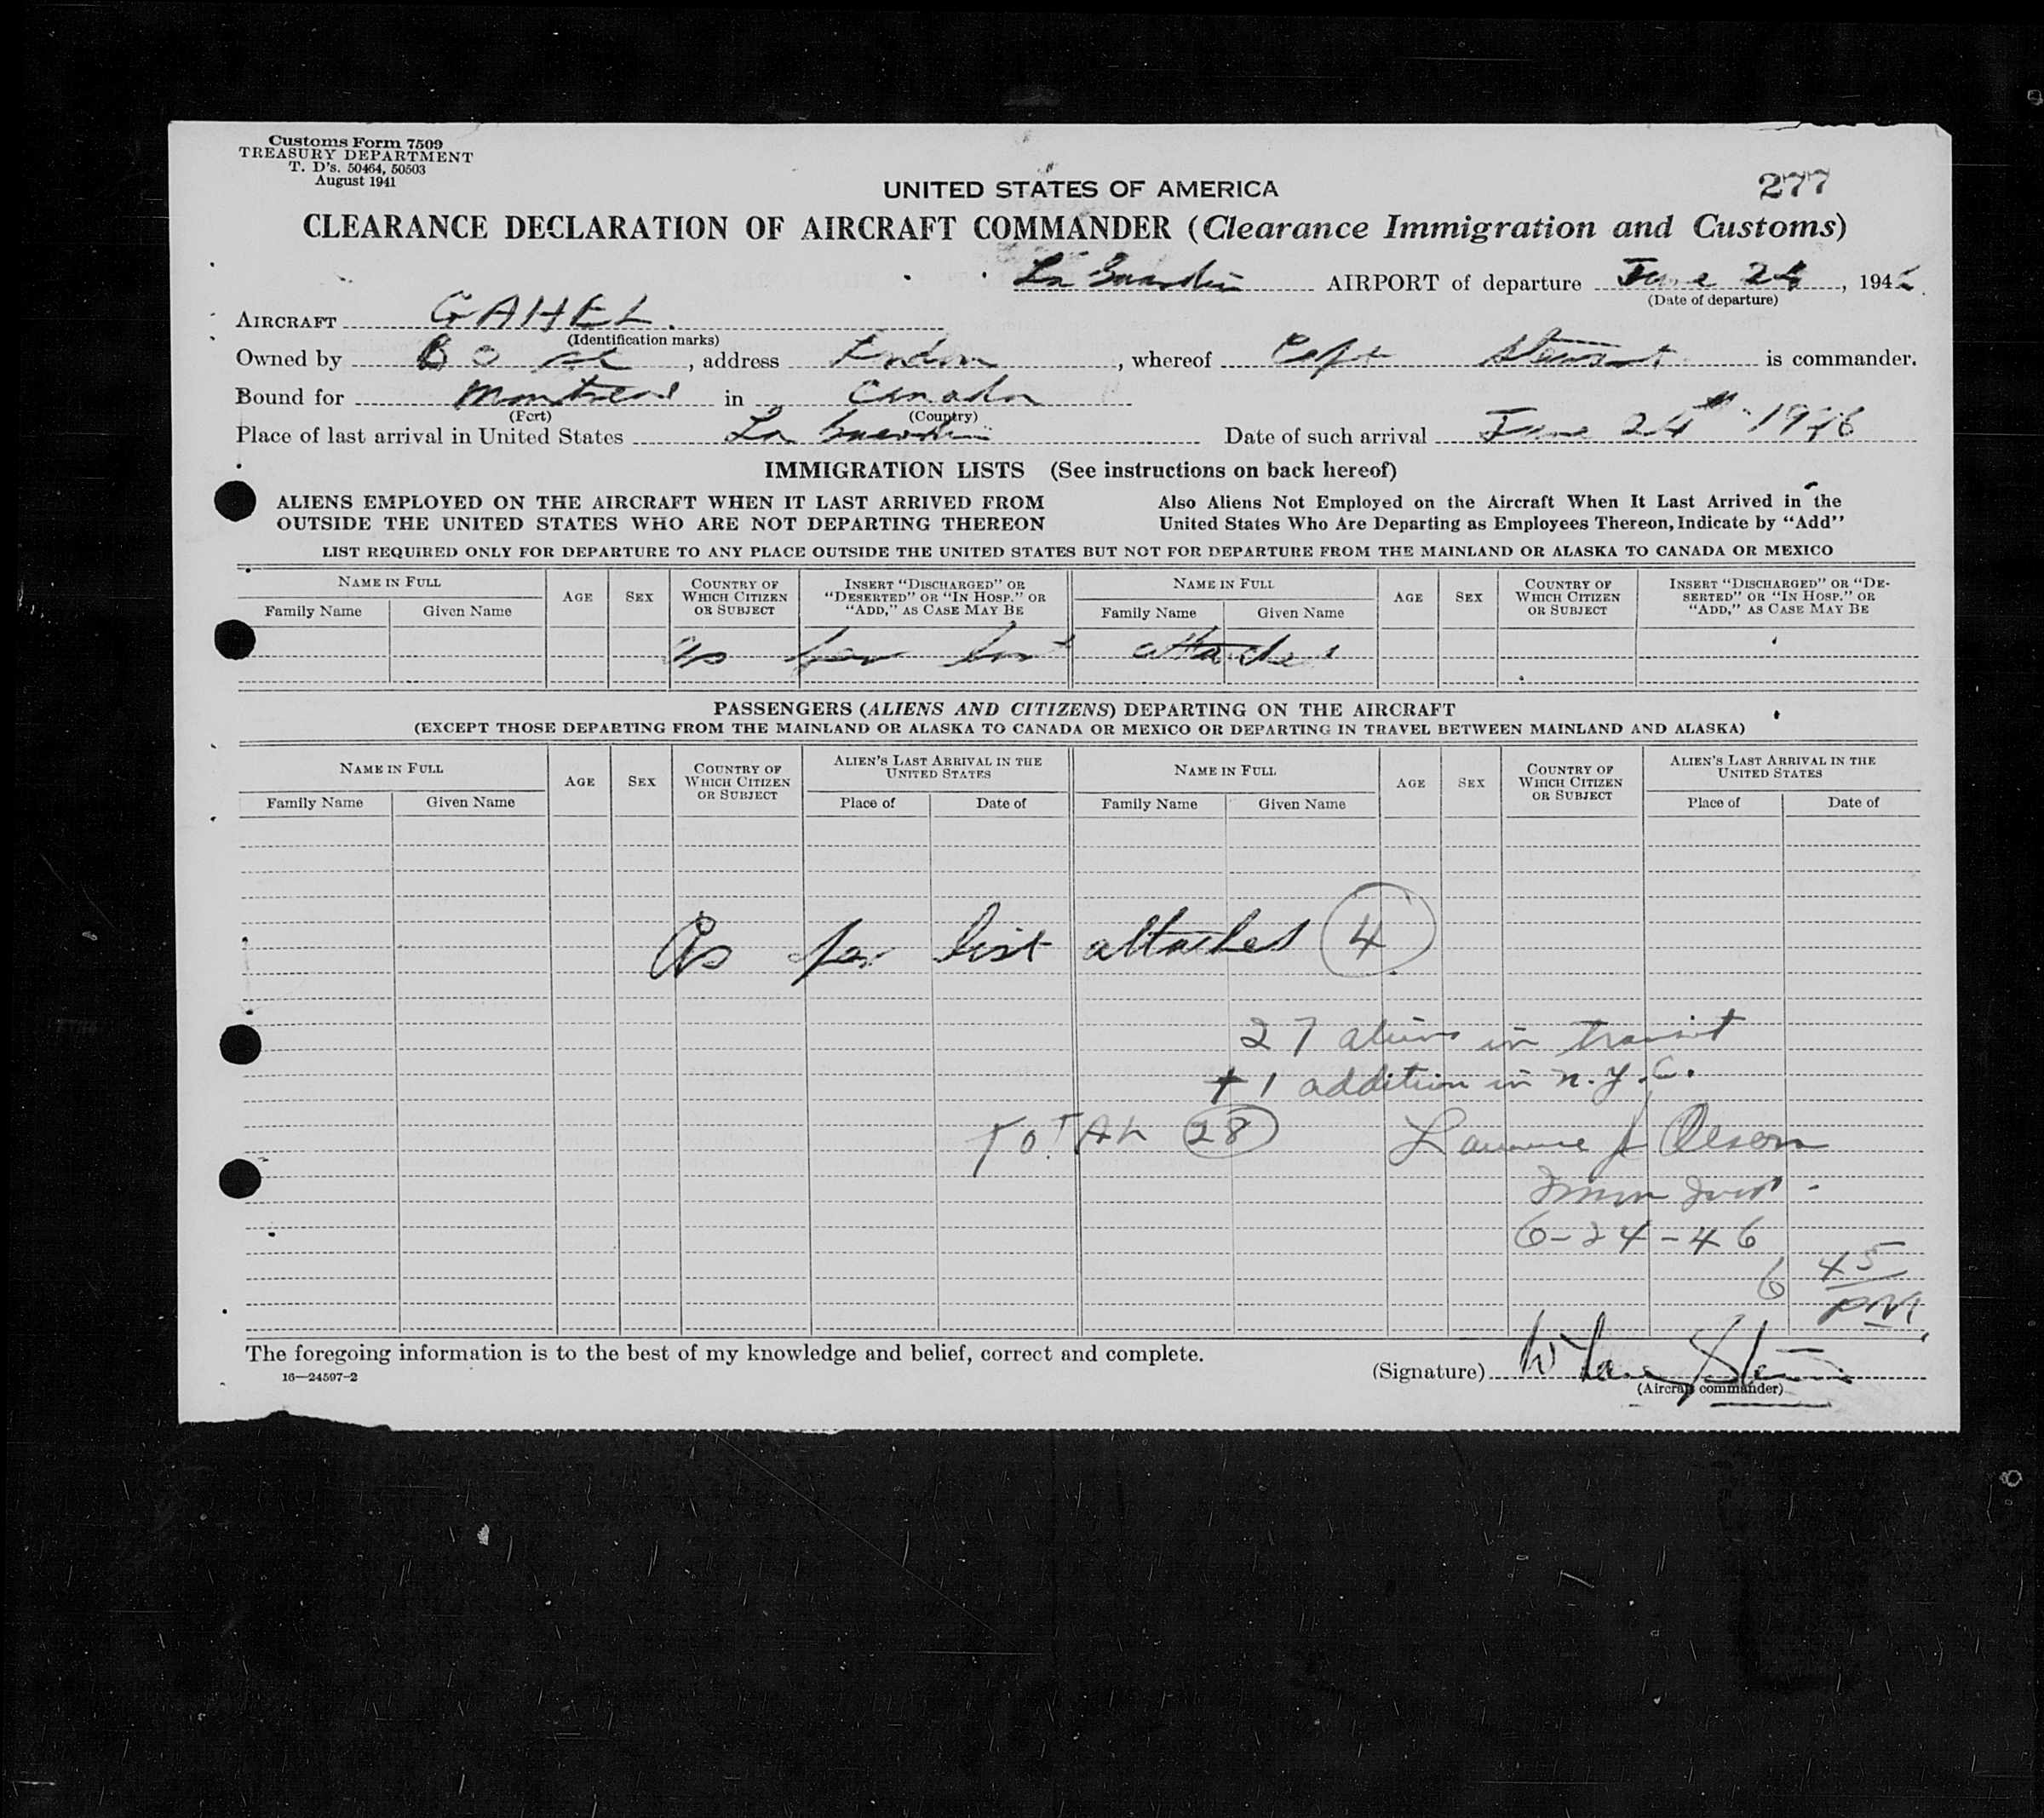 Customs Form 7509
TREASURY DEPARTMENT
T. D's. 50464, 50503
August 1941
277
UNITED STATES OF AMERICA
CLEARANCE DECLARATION OF AIRCRAFT COMMANDER (Clearance Immigration and Customs)
La Guardia AIRPORT of departure June 24, 1946
(Date of departure)
AIRCRAFT GAHEL.
(Identification marks)
Owned by B O , address London, whereof Capt Stewart is commander.
Bound for Montreal in Canada
(Port) (Country)
Place of last arrival in United States La Guardia Date of such arrival June 24th 1946
IMMIGRATION LISTS (See instructions on back hereof)
ALIENS EMPLOYED ON THE AIRCRAFT WHEN IT LAST ARRIVED FROM OUTSIDE THE UNITED STATES WHO ARE NOT DEPARTING THEREON
Also Aliens Not Employed on the Aircraft When It Last Arrived in the United States Who Are Departing as Employees Thereon, Indicate by "Add"
LIST REQUIRED ONLY FOR DEPARTURE TO ANY PLACE OUTSIDE THE UNITED STATES BUT NOT FOR DEPARTURE FROM THE MAINLAND OR ALASKA TO CANADA OR MEXICO
NAME IN FULL AGE SEX COUNTRY OF WHICH CITIZEN OR SUBJECT INSERT "DISCHARGED" OR "DESERTED" OR "IN HOSP." OR "ADD," AS CASE MAY BE NAME IN FULL AGE SEX COUNTRY OF WHICH CITIZEN OR SUBJECT INSERT "DISCHARGED" OR "DE-SERTED" OR "IN HOSP." OR "ADD," AS CASE MAY BE
Family Name Given Name Family Name Given Name
As per list attached
PASSENGERS (ALIENS AND CITIZENS) DEPARTING ON THE AIRCRAFT
(EXCEPT THOSE DEPARTING FROM THE MAINLAND OR ALASKA TO CANADA OR MEXICO OR DEPARTING IN TRAVEL BETWEEN MAINLAND AND ALASKA)
NAME IN FULL AGE SEX COUNTRY OF WHICH CITIZEN OR SUBJECT ALIEN'S LAST ARRIVAL IN THE UNITED STATES NAME IN FULL AGE SEX COUNTRY OF WHICH CITIZEN OR SUBJECT ALIEN'S LAST ARRIVAL IN THE UNITED STATES
Family Name Given Name Place of Date of Family Name Given Name Place of Date of
As per list attached 4
27 aliens in transit
+ 1 addition in N.Y.C.
TOTAL 28 Laurence J Olesen
Immn Insp.
6-24-46
6 45 PM
The foregoing information is to the best of my knowledge and belief, correct and complete.
16—24597-2
(Signature)
(Aircraft commander)